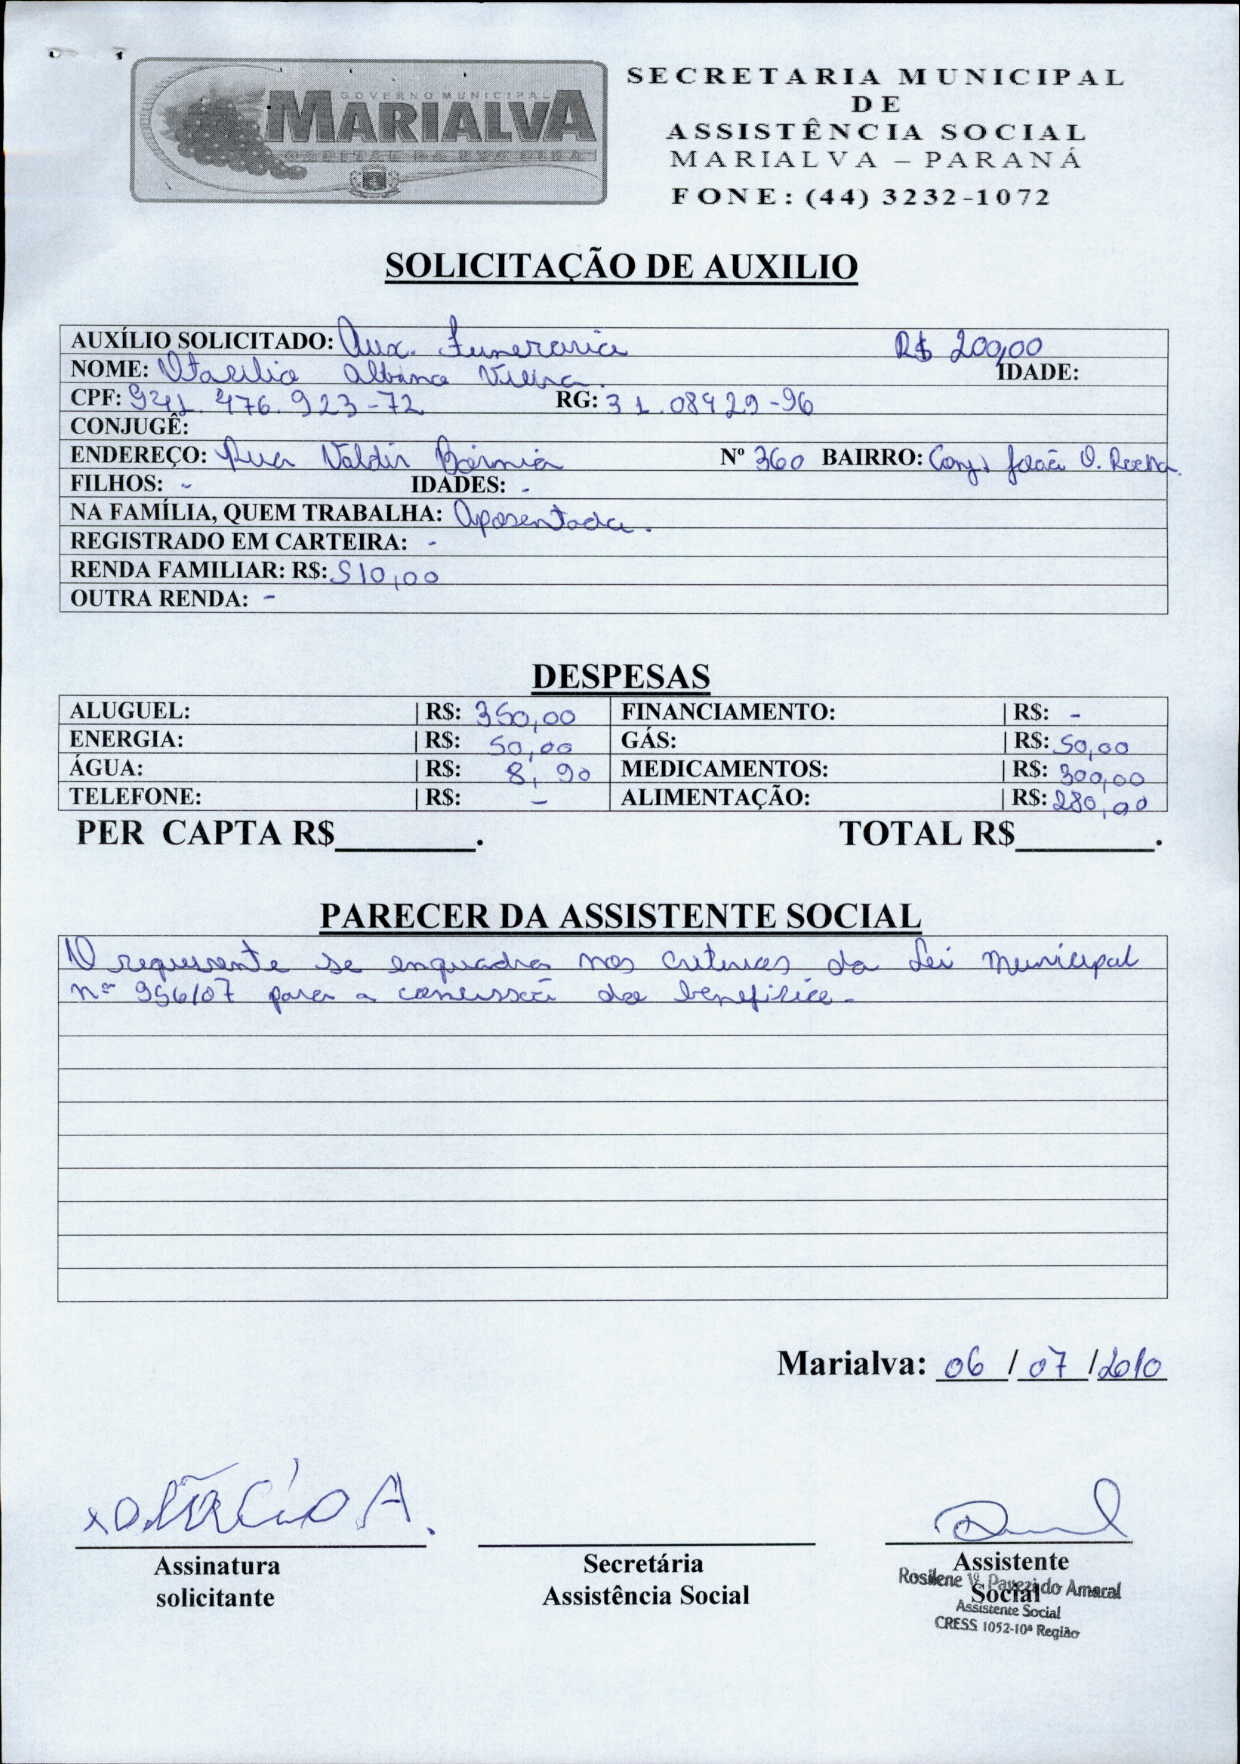 GOVERNO MUNICIPAL
MARIALVA
CAPITAL DA UVA FINA
SECRETARIA MUNICIPAL
DE
ASSISTÊNCIA SOCIAL
MARIALVA – PARANÁ
FONE: (44) 3232-1072
SOLICITAÇÃO DE AUXILIO
AUXÍLIO SOLICITADO: Aux. Funerario R$ 200,00
NOME: Otacilio Albino Vieira. IDADE:
CPF: 941.476.923-72 RG: 31.08929-96
CONJUGÊ:
ENDEREÇO: Rua Valdir Nº 360 BAIRRO: Conj. João O. Rocha.
FILHOS: - IDADES: -
NA FAMÍLIA, QUEM TRABALHA: Aposentado.
REGISTRADO EM CARTEIRA: -
RENDA FAMILIAR: R$: 510,00
OUTRA RENDA: -
DESPESAS
ALUGUEL: | R$: 350,00 FINANCIAMENTO: | R$: -
ENERGIA: | R$: 50,00 GÁS: | R$: 50,00
ÁGUA: | R$: 8,90 MEDICAMENTOS: | R$: 300,00
TELEFONE: | R$: - ALIMENTAÇÃO: | R$: 280,00
PER CAPTA R$________. TOTAL R$________.
PARECER DA ASSISTENTE SOCIAL
O requerente se enquadra nos criterios da Lei Municipal
nº 956/07 para a concessão do beneficio.
Marialva: 06 / 07 / 2010
x Otacilio A.
Assinatura
solicitante
Secretária
Assistência Social
Assistente
Social
Rosilene V. Pavezi do Amaral
Assistente Social
CRESS 1052-10ª Região